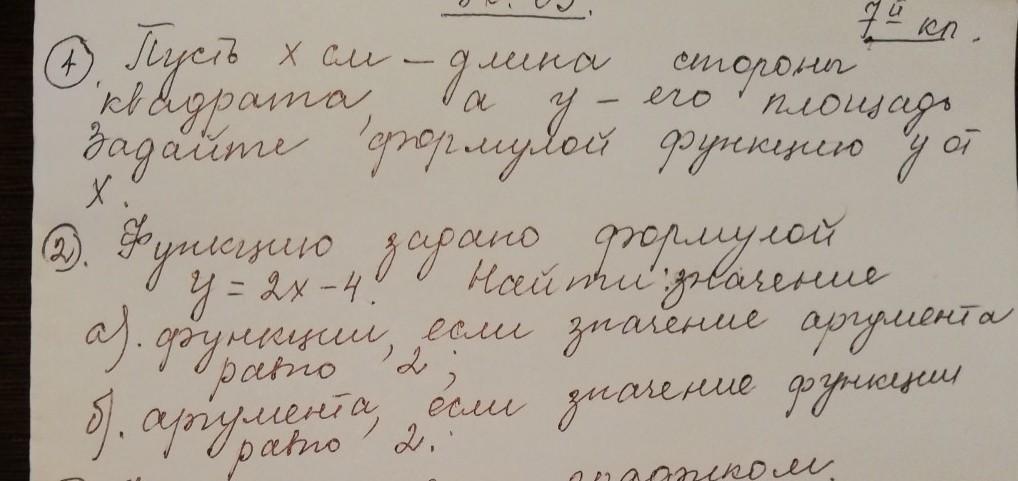 7й кл.
1. Пусть x см – длина стороны
квадрата, а y – его площадь
Задайте формулой функцию y от
x.
2. Функцию задано формулой
y = 2x – 4. Найти: значение
а). функции, если значение аргумента
равно 2;
б). аргумента, если значение функции
равно 2.